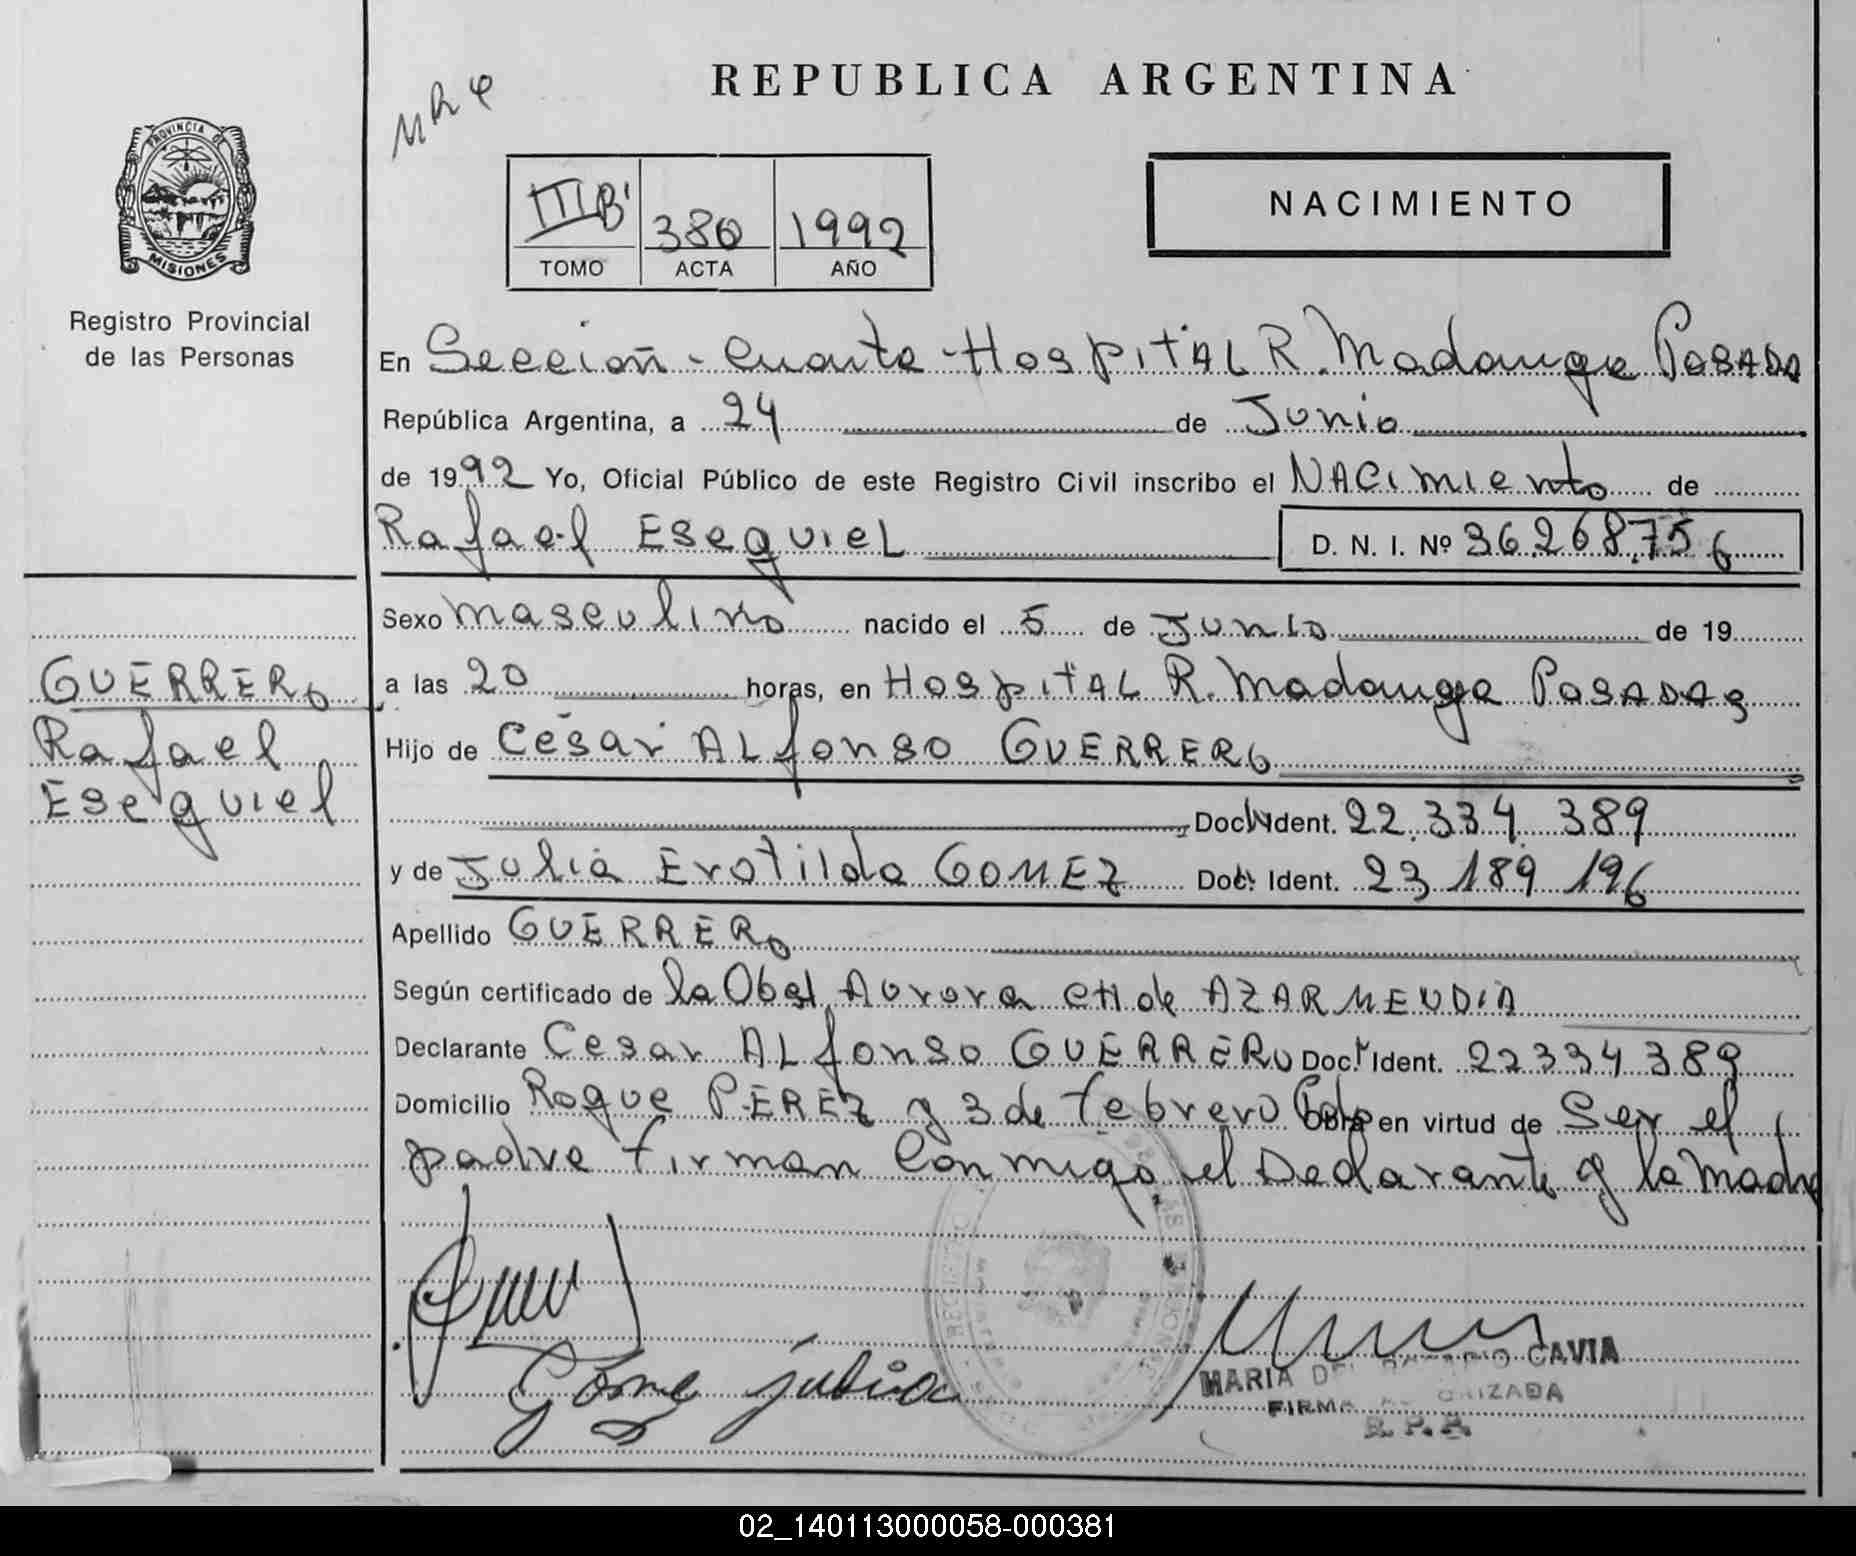 MR φ
REPUBLICA ARGENTINA
PROVINCIA DE
MISIONES
Registro Provincial
de las Personas
III B' 380 1992
TOMO ACTA AÑO
NACIMIENTO
En Sección - Cuarta - Hospital R. Madariaga POSADA
República Argentina, a 24 de Junio
de 1992 Yo, Oficial Público de este Registro Civil inscribo el NACimiento de
Rafael EsequieL D. N. I. Nº 36.268.756
Sexo masculino nacido el 5 de Junio de 19
a las 20 horas, en HospitAL R. Madariaga POSADAS
Hijo de César ALfonso GUERRERo
Doc. Ident. 22.334 389
y de Julia Erotilda GOMEZ Doc. Ident. 23 189 196
Apellido GUERRERo
Según certificado de la Obst. Aurora CH de AZARMENDIA
Declarante Cesar ALfonso GUERRERO Doc. Ident. 22334389
Domicilio Roque PEREZ y 3 de febrero Pdas Obra en virtud de Ser el
padre firman Conmigo el Declarante y la Madre
GUERRERo
Rafael
Esequiel
Gome julia
MARIA DEL ROSARIO CAVIA
FIRMA AUTORIZADA
R.P.P.
02_140113000058-000381